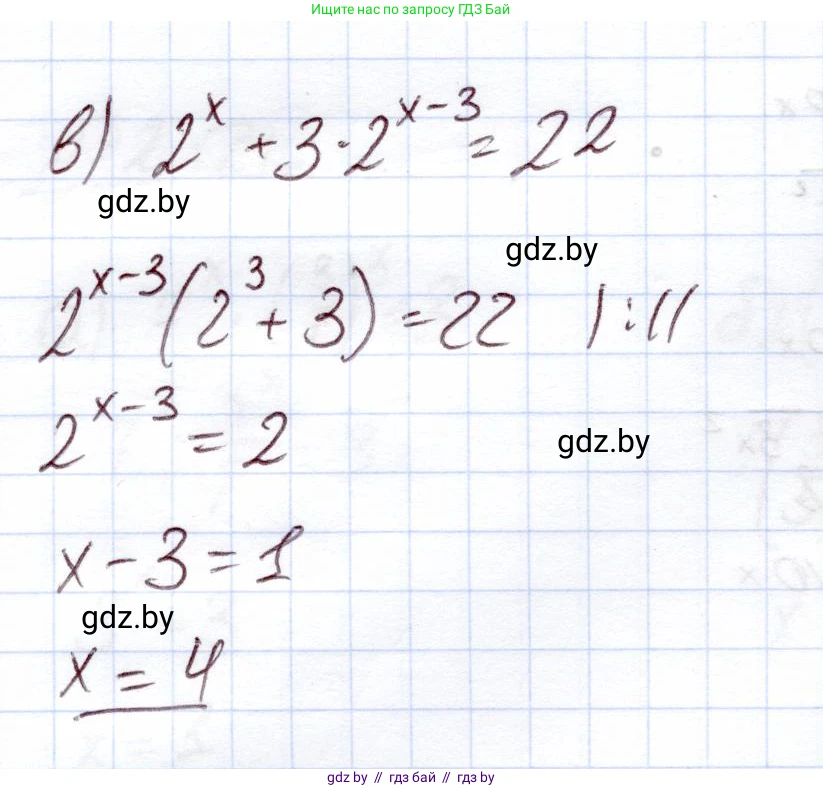 Ищите нас по запросу ГДЗ Бай
в) 2^x + 3·2^(x-3) = 22
gdz.by
gdz.by
2^(x-3)(2^3 + 3) = 22 |:11
2^(x-3) = 2
gdz.by
x - 3 = 1
gdz.by
x = 4
gdz by // гдз бай // гдз by